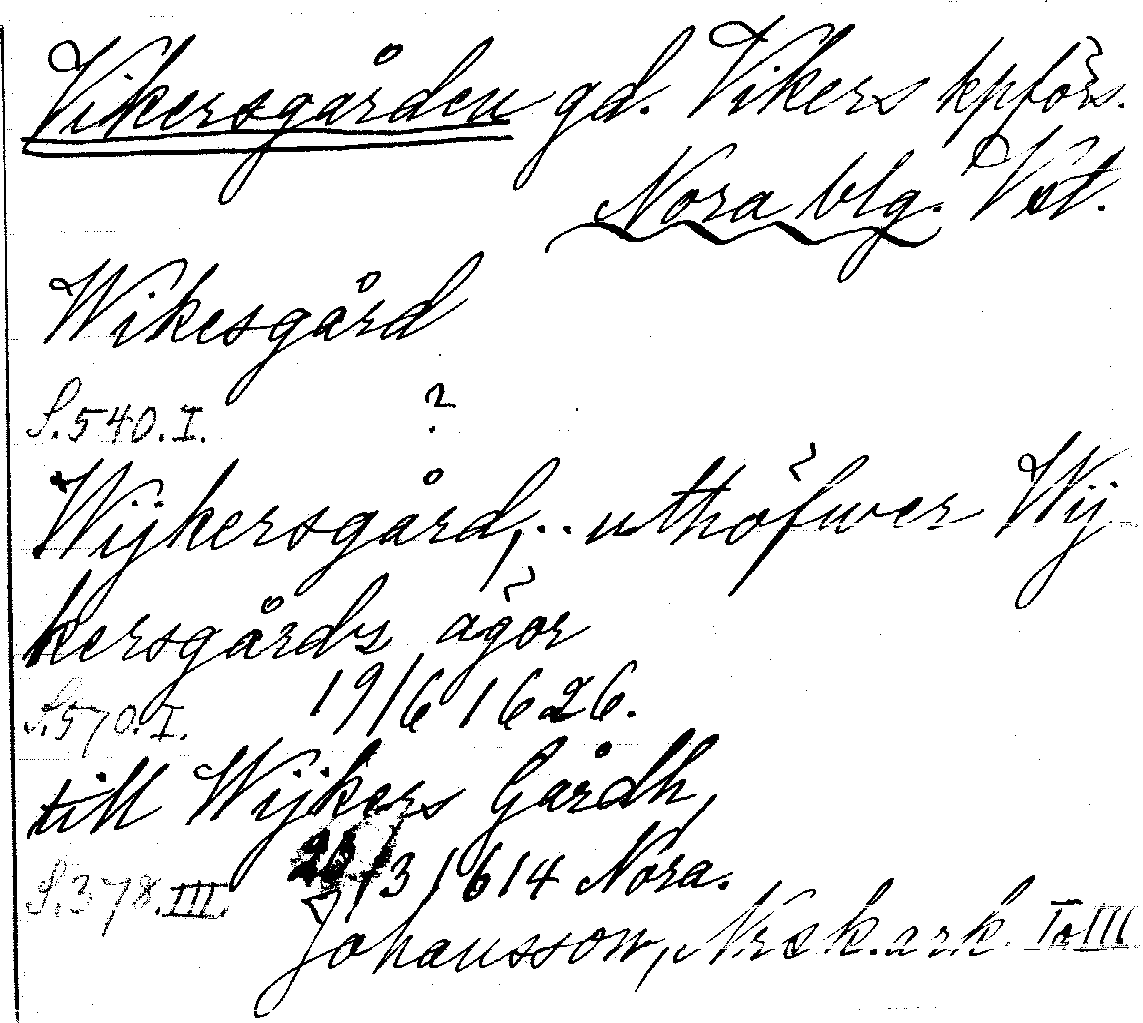 Vikersgården gd. Vikers kpförs.
Nora blg. Vst.
Wikesgård
S.540.I. ?
Wijkersgård, .. uthöfwer Wij
kersgårds ägor
S.570.I. 19/6 1626.
till Wijkers Gårdh,
S.378.III. /3 1614 Nora.
Johansson, Norask.ark. I o III